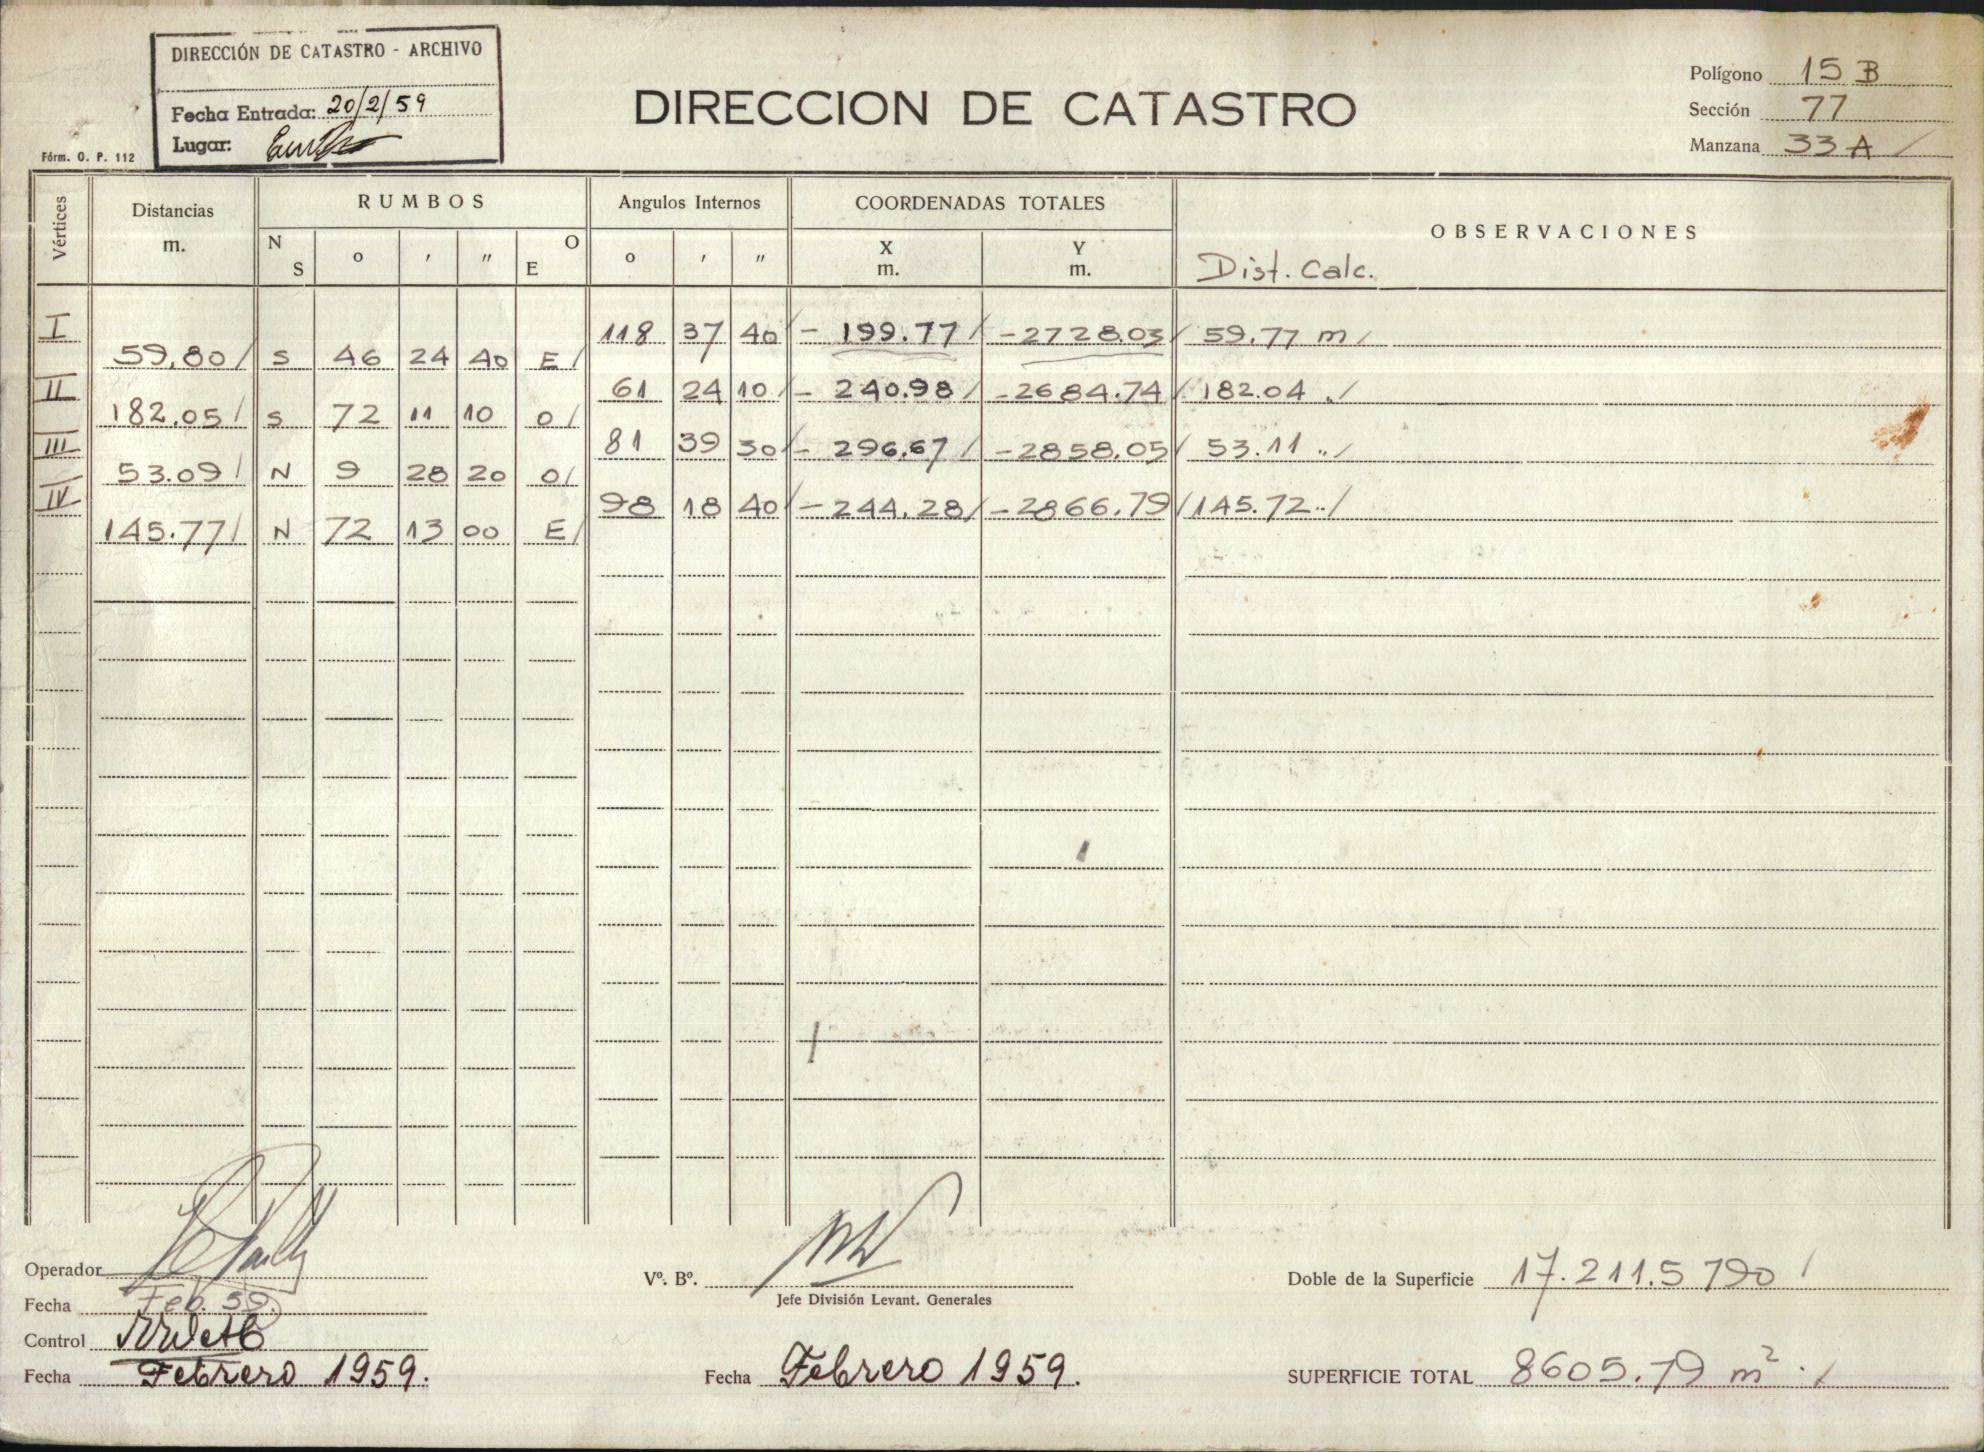 DIRECCIÓN DE CATASTRO - ARCHIVO
Fecha Entrada: 20/2/59
Lugar:
Fórm. O. P. 112
DIRECCION DE CATASTRO
Polígono 15 B
Sección 77
Manzana 33 A /
Vértices
Distancias m.
RUMBOS
N S o ' " O E
Angulos Internos
o ' "
COORDENADAS TOTALES
X m. Y m.
OBSERVACIONES
Dist. Calc.
I 118 37 40 / - 199.77 / -2728.03 / 59.77 m /
59.80 / S 46 24 40 E /
II 61 24 10 / - 240.98 / -2684.74 / 182.04 " /
182.05 / S 72 11 10 O /
III 81 39 30 / - 296.67 / -2858.05 / 53.11 " /
53.09 / N 9 28 20 O /
IV 98 18 40 / - 244.28 / -2866.79 / 145.72 " /
145.77 / N 72 13 00 E /
Operador
Fecha Feb. 59.
Control
Fecha Febrero 1959.
Vº. Bº.
Jefe División Levant. Generales
Fecha Febrero 1959.
Doble de la Superficie 17.211.5790 /
SUPERFICIE TOTAL 8605.79 m² . /